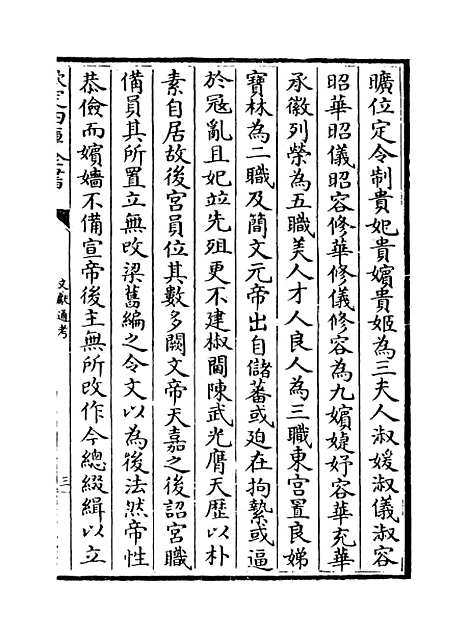 曠位定令制貴妃貴嬪貴姬為三夫人淑媛淑儀淑容
昭華昭儀昭容修華修儀修容為九嬪婕妤容華充華
承徽列榮為五職美人才人良人為三職東宮置良娣
寶林為二職及簡文元帝出自儲蕃或迫在拘縶或逼
於冦亂且妃竝先殂更不建椒閫陳武光膺天歷以朴
素自居故後宮員位其數多闕文帝天嘉之後詔宮職
備員其所置立無改梁舊編之令文以為後法然帝性
恭儉而嬪嬙不備宣帝後主無所改作今總綴緝以立
欽定四庫全書
文獻通考
三